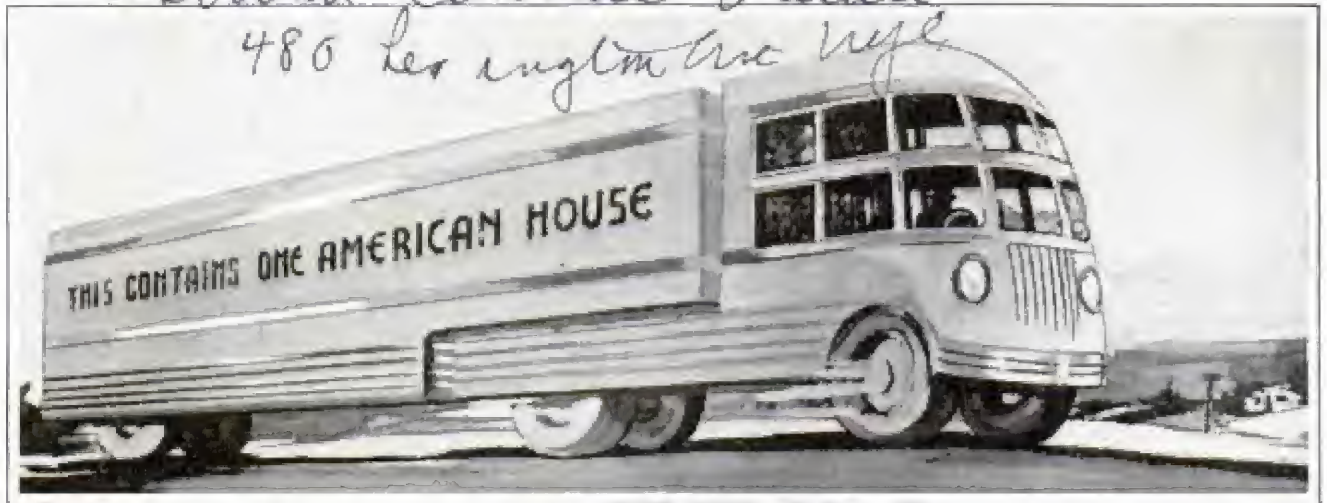 480 Lexington Ave NYC
THIS CONTAINS ONE AMERICAN HOUSE